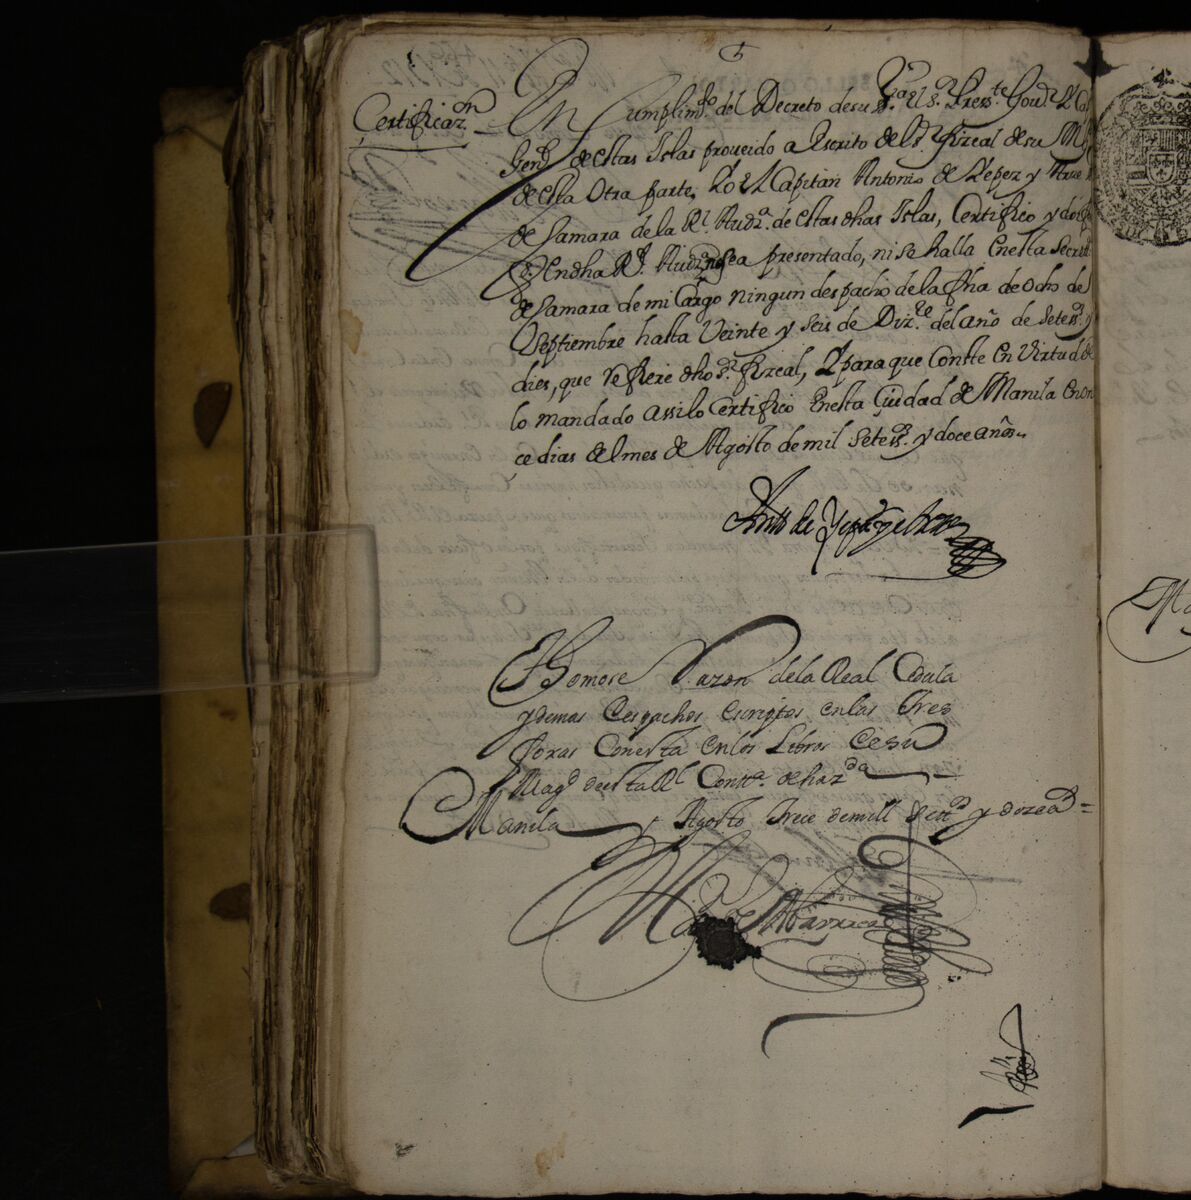 Certificaz.on
En Cumplim.to del Decreto de su S.a el S.r Press.te Gou.r y Ca
Gen.l de estas Islas proueido a escrito del S.r fizcal de su M
de esta Otra parte, Yo el Capitan Antonio de Yepez y
de Camara de la R.l Aud.a de estas dhas Islas, Certifico y doi fe
En dha R.l Aud.a no sea presentado, ni se halla En esta Secret
de Camara de mi Cargo ningun despacho de la fha de ocho de
Septiembre hasta Veinte y seis de Diz.re del año de Setes.s y
dies, que refiere dho S.r fizcal, Y para que Conste En Virtud de
lo mandado assi lo Certifico En esta Ciudad de Manila en on
ce dias del mes de Agosto de mil Setes.s y doce años
Ant.o de Yepez y
Thomose Razon de la Real Cedula
y demas Despachos escriptos en las tres
foxas Con esta en los Libros de su
Mag.d de esta R.l Cont.a de haz.da
Manila y Agosto trece de mill y doze a.s =